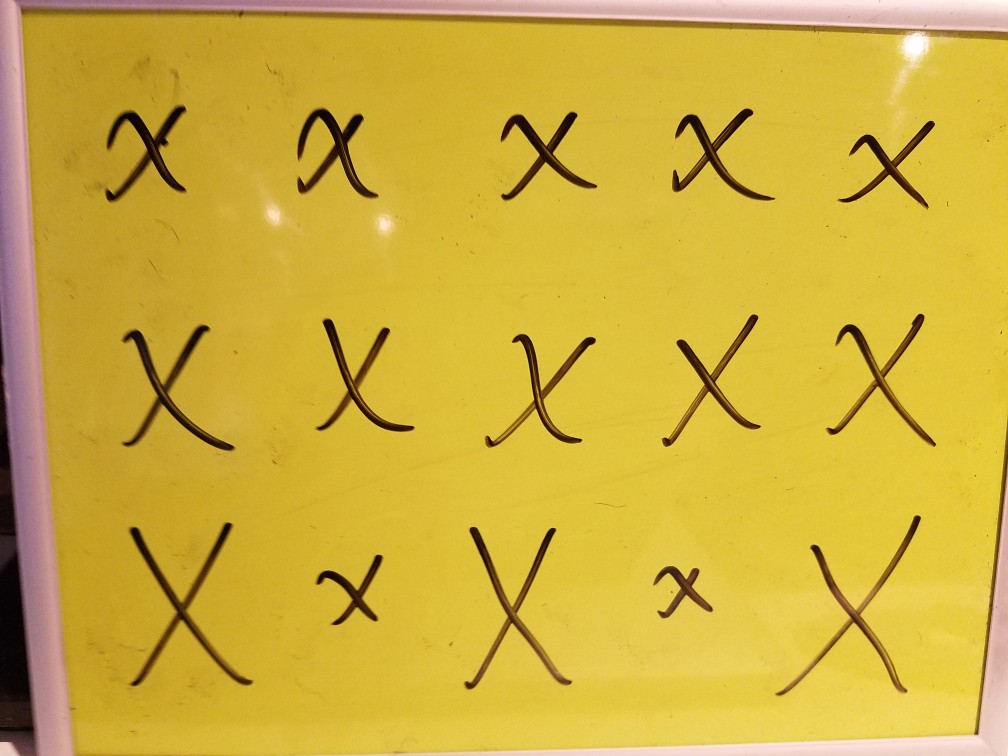 x x x x x
X X X X X
X x X x X